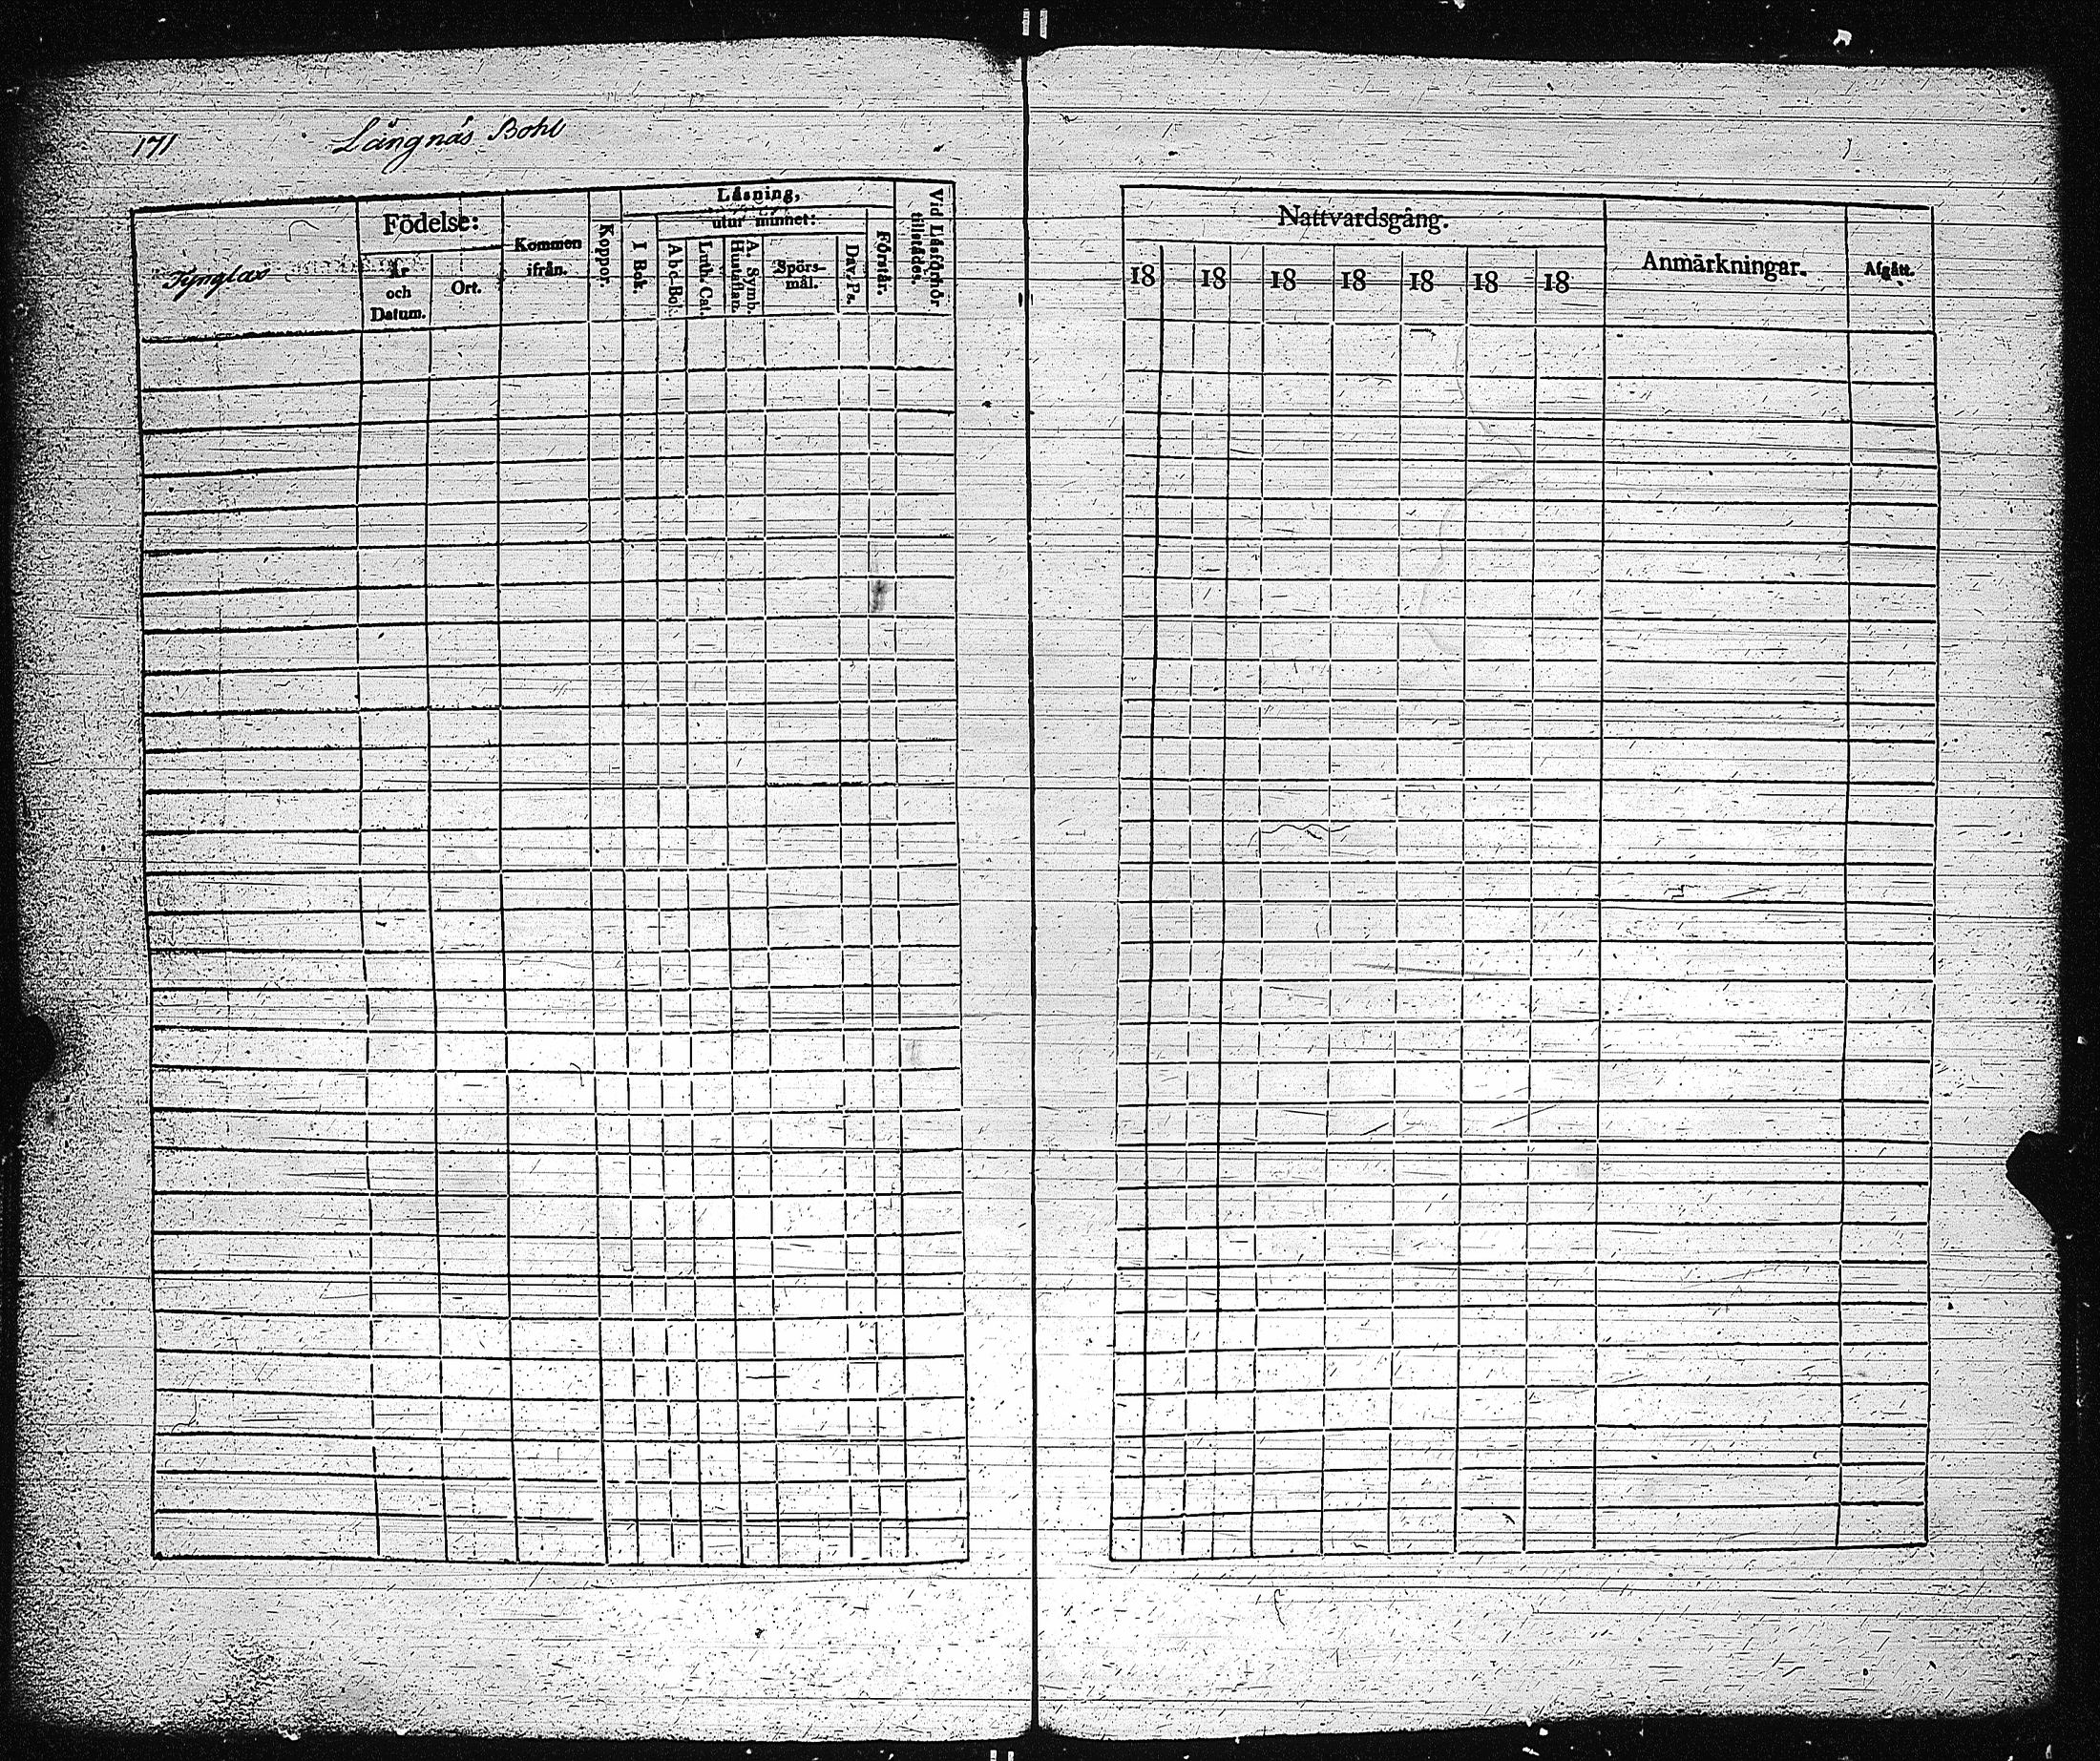 171 Långnäs Bohl
Tynglax
Födelse:
År och Datum.
Ort.
Kommen ifrån.
Koppor.
Läsning,
I Bok.
utur minnet:
A b c-Bok
Luth. Cat.
A. Symb. Hustaflan.
Spörs-
mål.
Dav. Ps.
Förstår.
Vid Läsförhör tillstädes.
Nattvardsgång.
18 18 18 18 18 18 18
Anmärkningar.
Afgått.